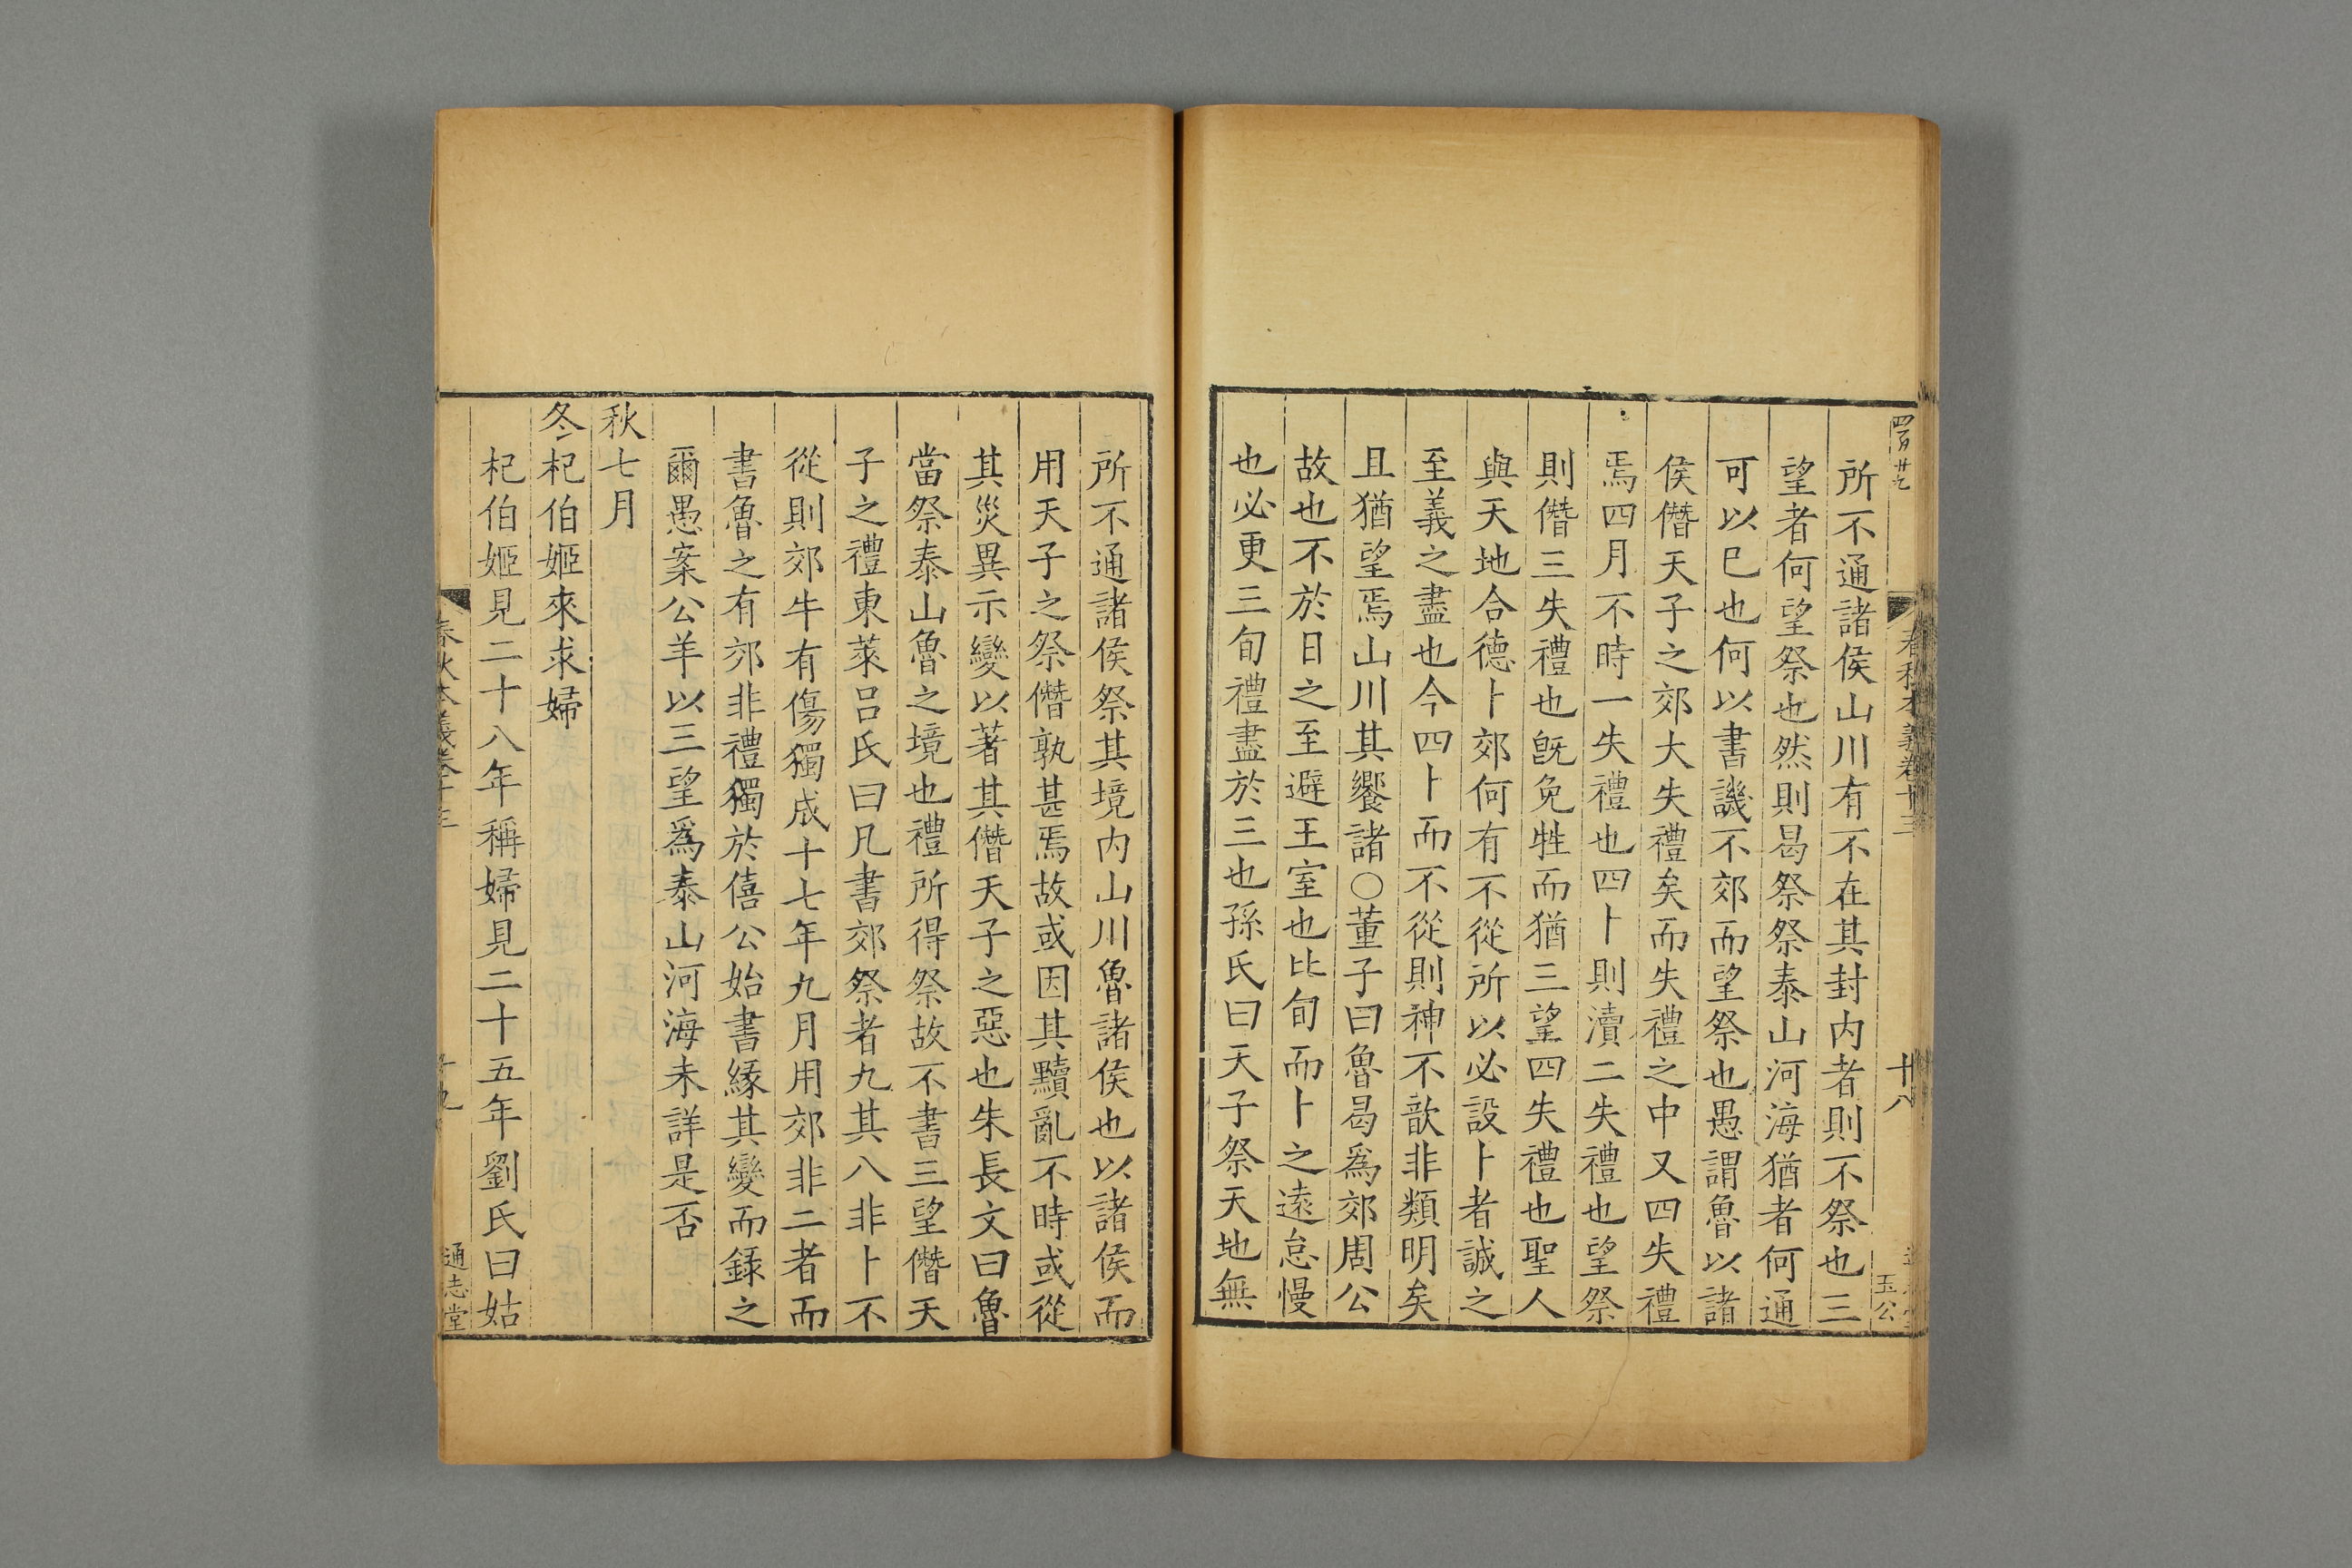 春秋本義卷十三
十八
玉公
所不通諸侯山川有不在其封内者則不祭也三
望者何望祭也然則曷祭祭泰山河海猶者何通
可以巳也何以書譏不郊而望祭也愚謂魯以諸
侯僭天子之郊大失禮矣而失禮之中又四失禮
焉四月不時一失禮也四卜則瀆二失禮也望祭
則僭三失禮也旣免牲而猶三望四失禮也聖人
與天地合德卜郊何有不從所以必設卜者誠之
至義之盡也今四卜而不從則神不歆非類明矣
且猶望焉山川其饗諸○董子曰魯曷爲郊周公
故也不於日之至避王室也比旬而卜之遠怠慢
也必更三旬禮盡於三也孫氏曰天子祭天地無
所不通諸侯祭其境内山川魯諸侯也以諸侯而
用天子之祭僭孰甚焉故或因其黷亂不時或從
其災異示變以著其僭天子之惡也朱長文曰魯
當祭泰山魯之境也禮所得祭故不書三望僭天
子之禮東萊呂氏曰凡書郊祭者九其八非卜不
從則郊牛有傷獨成十七年九月用郊非二者而
書魯之有郊非禮獨於僖公始書緣其變而録之
爾愚案公羊以三望爲泰山河海未詳是否
秋七月
冬杞伯姬來求婦
杞伯姬見二十八年稱婦見二十五年劉氏曰姑
春秋本義卷十三
十九
通志堂